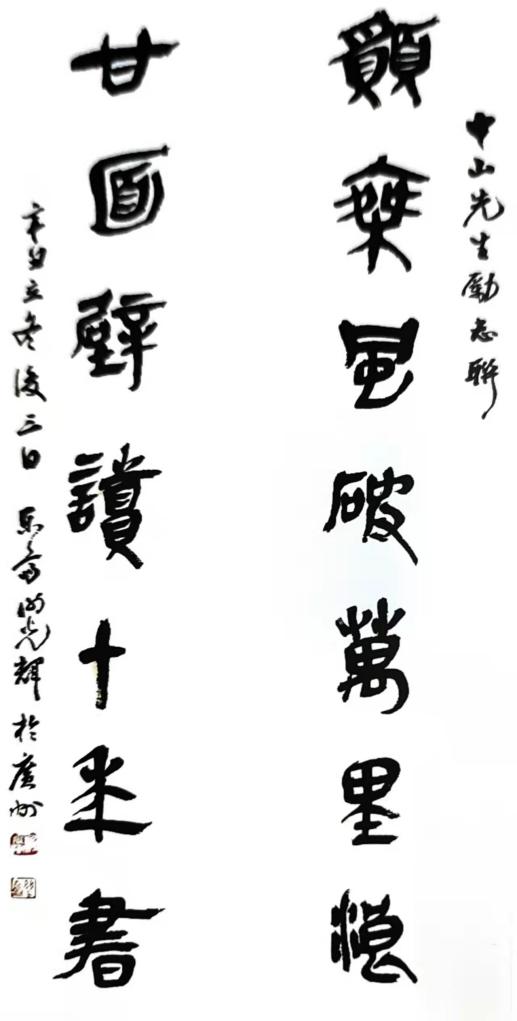 中山先生勵志聯
願乘風破萬里浪
甘面壁讀十年書
辛丑立冬後三日 樂齋謝光輝於廣州